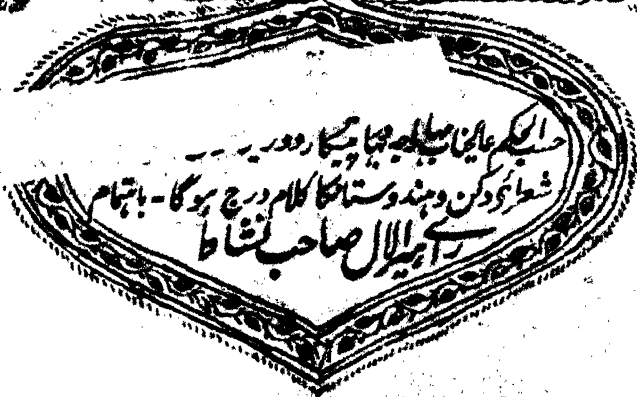 حسب الحکم عالیجناب مہاراجہ
شعرائے دکن وہندوستانکا کلام درج ہوگا - باہتمام
رائے ہیرالال صاحب نشاط